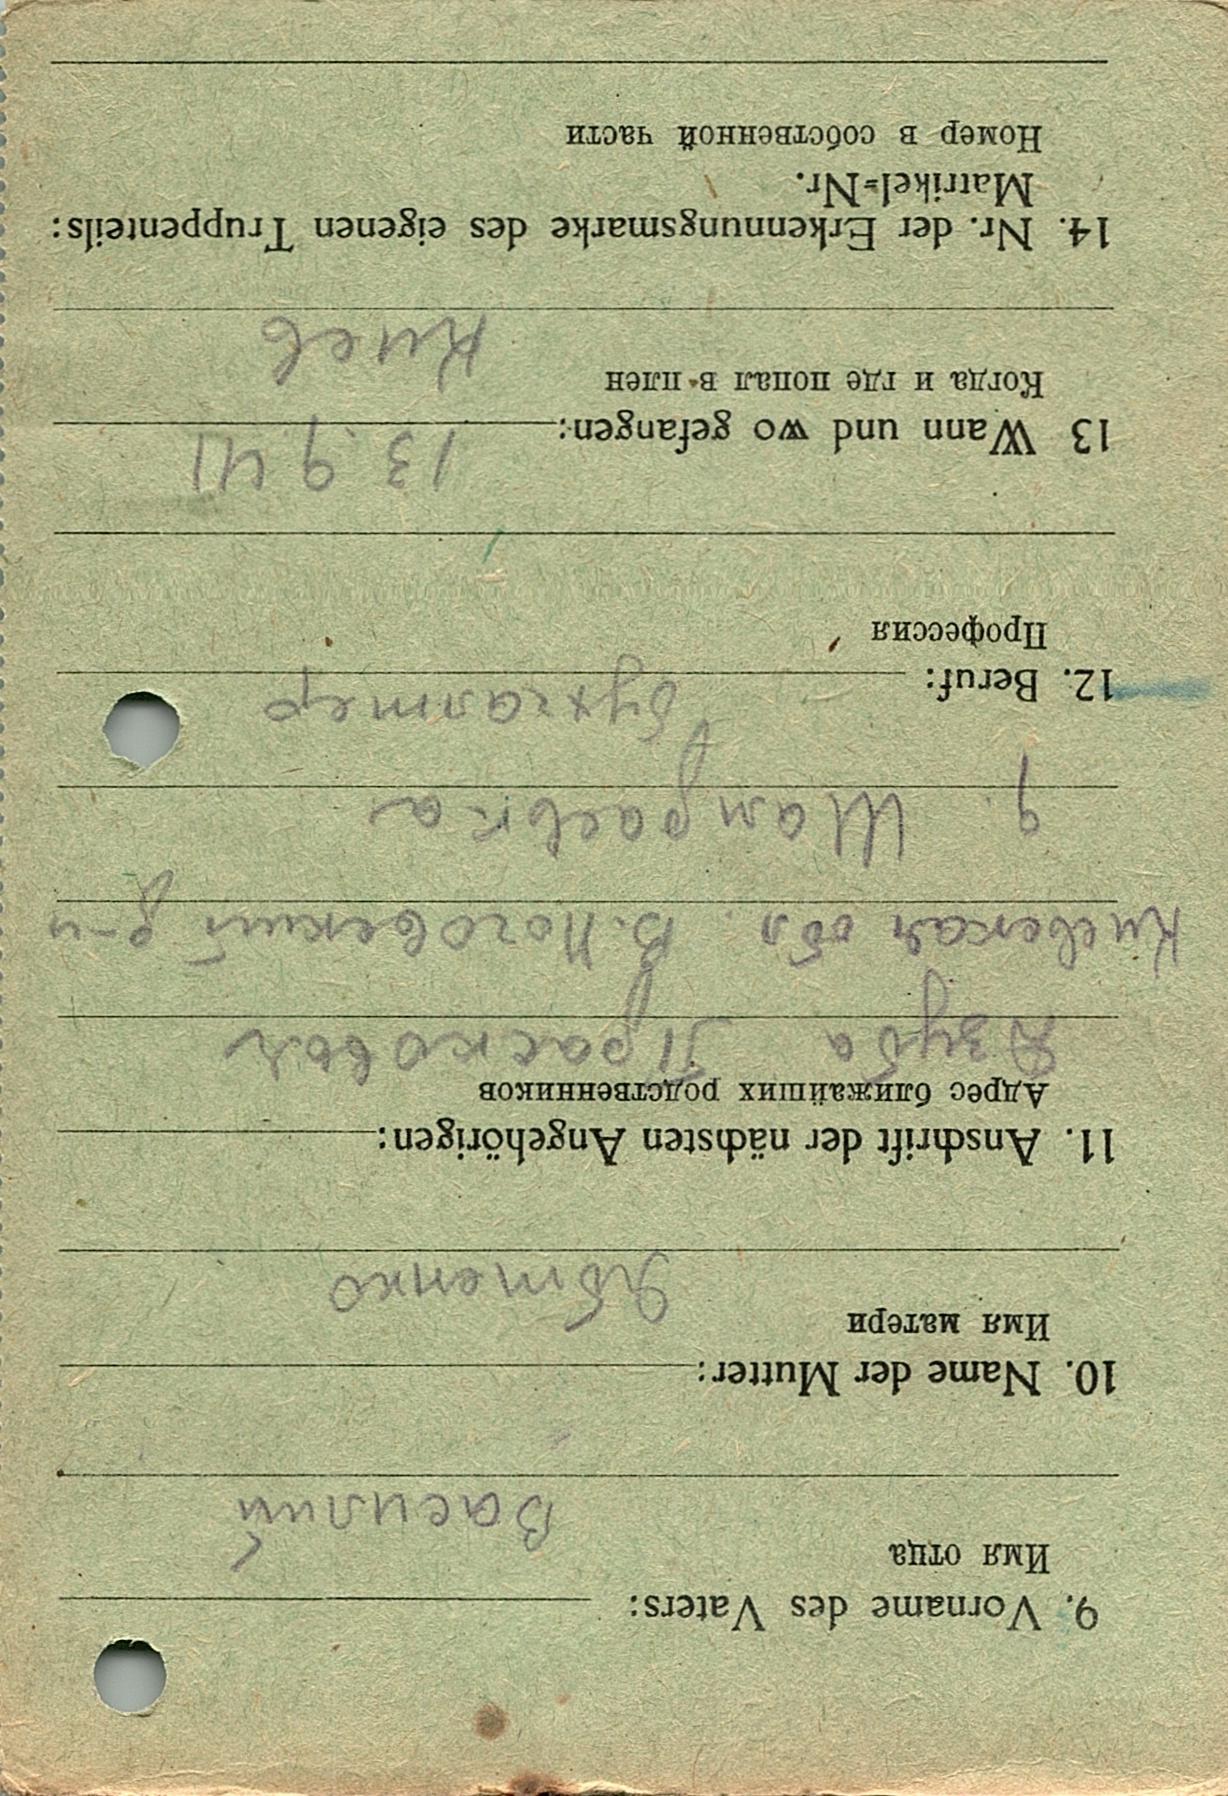 9. Vorname des Vaters:
Имя отца
Василий
10. Name der Mutter:
Имя матери
11. Anschrift der nächsten Angehörigen:
Адрес ближайших родственников
Дзуба Прасковья
Киевская обл. р-н
д. Шамраевка
12. Beruf:
Профессия
бухгалтер
13 Wann und wo gefangen:
13.9 41
Когда и где попал в плен
Киев
14. Nr. der Erkennungsmarke des eigenen Truppenteils:
Matrikel=Nr.
Номер в собственной части